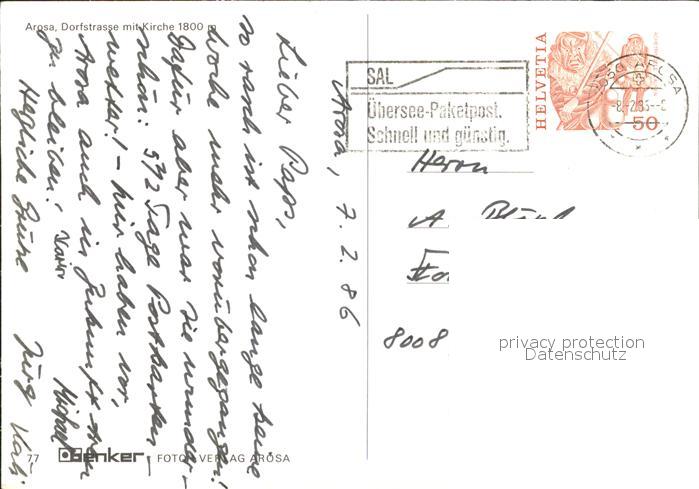 Arosa, Dorfstrasse mit Kirche 1800 m
SAL
Übersee-Paketpost.
Schnell und günstig.
HELVETIA
50
AROSA
Arosa, 7.2.86
Lieber Paps,
so rasch ist schon lange keine
Woche mehr vorübergegangen!
Dafür aber war sie wunder-
schön: 5 1/2 Tage Postkarten-
wetter! – Wir haben vor,
Arosa auch in Zukunft treu
zu bleiben!
Herzliche Grüsse
Jürg
Michael
Herrn
A.
8008
privacy protection
Datenschutz
77 Genker FOTO VERLAG AROSA